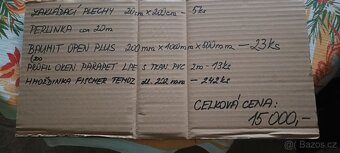 ZAKLÁDACÍ PLECHY - 20cm x 200cm - 5ks
PERLINKA cca 20m
BAUMIT OPEN PLUS 200mm x 1000mm x 500mm - 23ks
PROFIL OKEN. PARAPET LPE S TKAN. PVC 2m - 13ks
HMOŽDINKA FISCHER TERMOZ dl. 202mm - 242ks
CELKOVÁ CENA:
15 000,-
Bazoš.cz